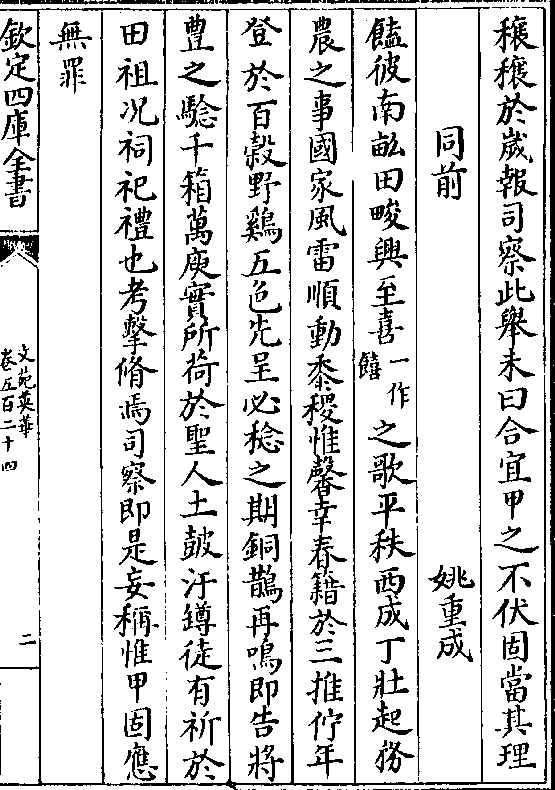 穰穰於歲報司察此舉未曰合宜甲之不伏固當其理
同前　姚重成
饁彼南畝田畯興至喜一作饎之歌平秩西成丁壯起務
農之事國家風雷順動黍稷惟馨幸春籍於三推佇年
登於百穀野鷄五色先呈必稔之期銅鵲再鳴即告將
豊之騐千箱萬庾實所荷於聖人土鼓汙罇徒有祈於
田祖况祠祀禮也考擊脩焉司察即是妄稱惟甲固應
無罪
欽定四庫全書
文苑英華
卷五百二十四
二